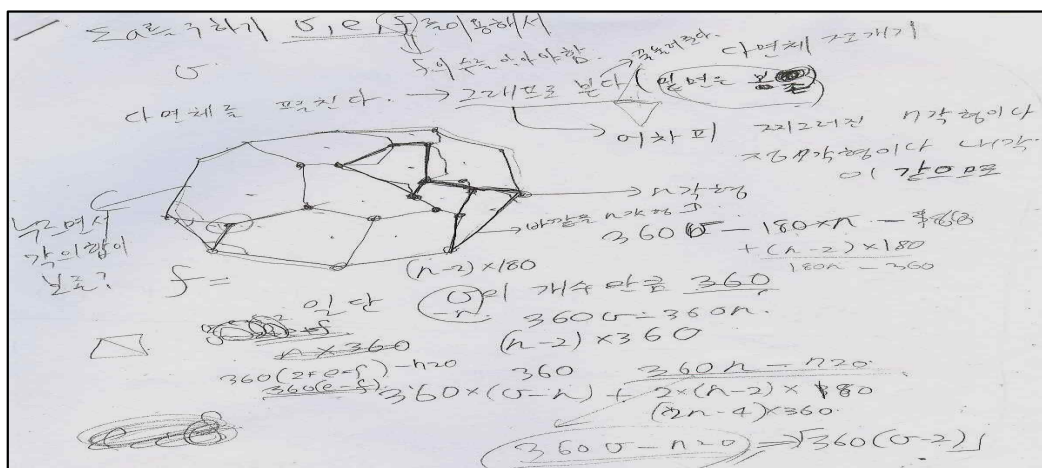 Σa를 구하기 v, e, f를 이용해서
f의 수를 알아야함.
v
다면체 쪼개기
다면체를 펼친다. → 그래프로 본다 (밑면은
어차피 찌그러진 n각형이나
정n각형이나 내각
이 같으므로
n각형
바깥은 n각형
누르면서
각의 합이
360v - 180×n -
+(n-2)×180
180n - 360
f =
(n-2)×180
일단 v의 개수 만큼 360
-n
360v - 360n.
n×360
(n-2)×360
360(2+e-f)-720
360(e-f)
360
360n - 720
360×(v-n) + 2×(n-2)×180
(2n-4)×360
360v - 720 ⇒ 「360(v-2)」